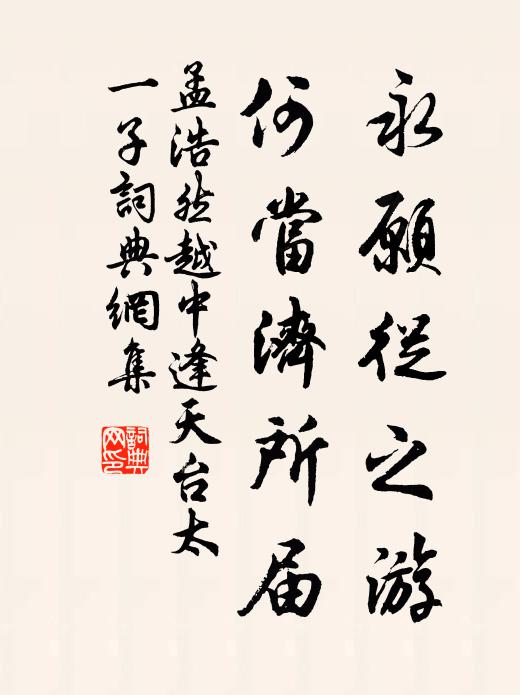 永願從之游
何當濟所届
孟浩然越中逢天台太
一子詞典網集
詞典网印